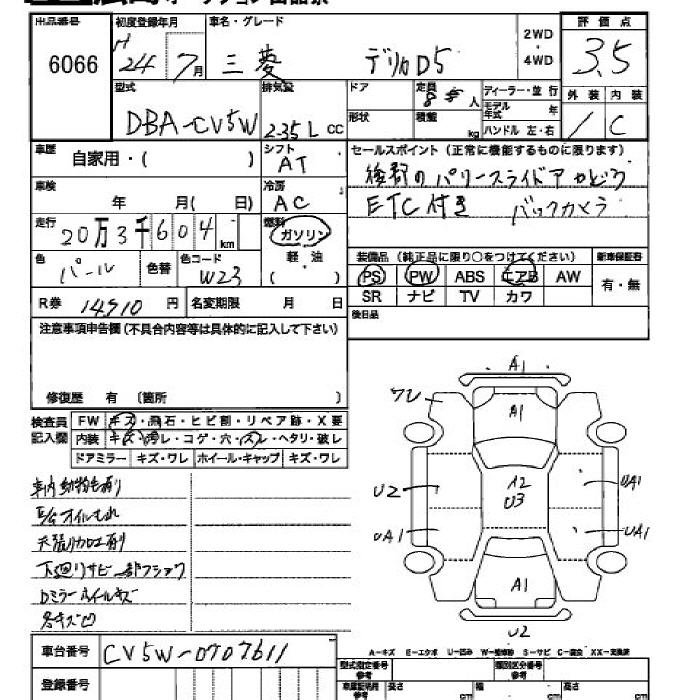 出品番号 初度登録年月 車名・グレード 2WD・4WD 評価点
6066 H24 7月 三菱 デリカD5 3.5
型式 排気量 ドア 定員 8 人 ディーラー・並行 外装 内装
DBA-CV5W 235L cc 形状 積載 kg モデル年式 年 ハンドル 左・右 C
車歴 自家用・( ) シフト AT セールスポイント(正常に機能するものに限ります)
車検 年 月( 日) 冷房 AC
ETC付き バックカメラ
走行 20万3千604km 燃料 ガソリン
軽油
( )
色 パール 色替 色コード W23
装備品(純正品に限り○をつけてください) 新車保証書
PS PW ABS エアB AW 有・無
SR ナビ TV カワ
R券 14910円 名変期限 月 日
後日品
注意事項申告欄(不具合内容等は具体的に記入して下さい)
修復歴 有 〔箇所 〕
検査員記入欄 FW キズ・飛石・ヒビ割・リペア跡・X要
内装 キズ・汚レ・コゲ・穴・スレ・ヘタリ・破レ
ドアミラー キズ・ワレ ホイール・キャップ キズ・ワレ
A1
ワレ
A1
U2 A2 U3 UA1
UA1 UA1
A1
U2
車内動物毛有り
E/Gオイルもれ
天張り加工有り
下廻りサビ 一部フック
Dミラーホイルキズ
各キズ凹
A-キズ E-エクボ U-凹み W-補修跡 S-サビ C-腐食 XX-交換済
車台番号 CV5W-0707611
型式指定番号 参考 類別区分番号 参考
登録番号
車庫証明用 参考 長さ cm 幅 cm 高さ cm